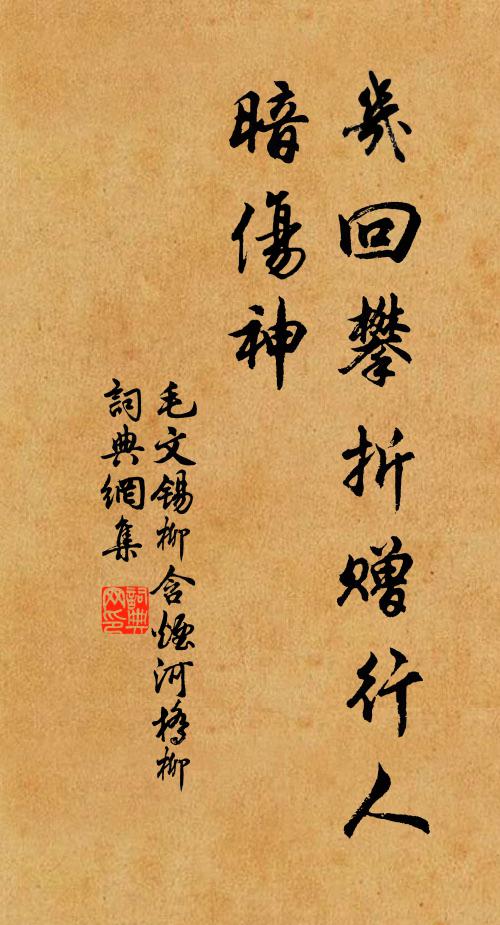 幾回攀折贈行人
暗傷神
毛文錫柳含煙河橋柳
詞典網集
詞典网印